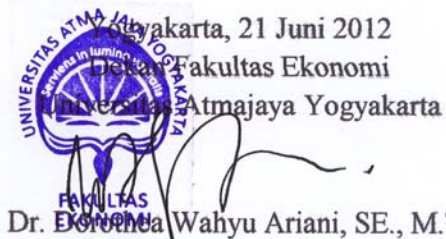 Yogyakarta, 21 Juni 2012
Dekan Fakultas Ekonomi
Universitas Atmajaya Yogyakarta
UNIVERSITAS ATMA JAYA YOGYAKARTA
Serviens in lumine veritatis
FAKULTAS
EKONOMI
Dr. Dorothea Wahyu Ariani, SE., M.